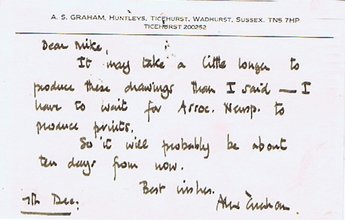 A. S. GRAHAM, HUNTLEYS, TICEHURST, WADHURST, SUSSEX. TN5 7HP
TICEHURST 200252
Dear Mike,
It may take a little longer to
produce these drawings than I said — I
have to wait for Assoc. Newsp. to
produce prints.
So it will probably be about
ten days from now.
Best wishes.
Alex Graham.
7th Dec.